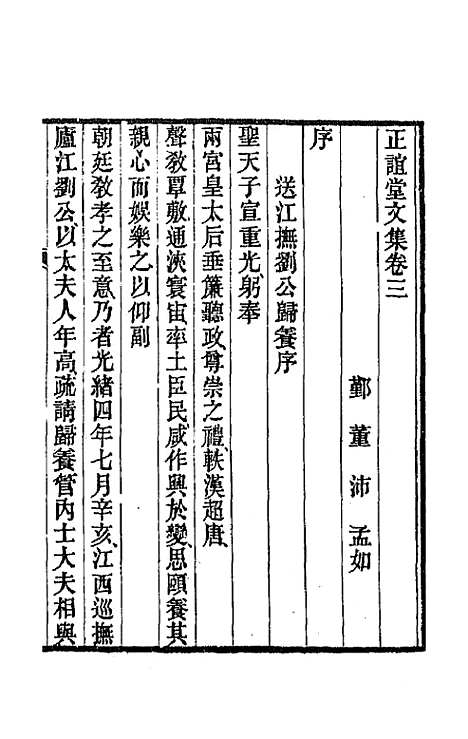 正誼堂文集卷三
鄞董沛孟如
序
送江撫劉公歸養序
聖天子宣重光、躬奉
兩宮皇太后垂簾聽政、尊崇之禮、軼漢超唐、
聲敎覃敷、通浹寰宙、率土臣民、咸作興於變、思頤養其
親心而娛樂之、以仰副
朝廷敎孝之至意、乃者光緒四年七月辛亥、江西巡撫
廬江劉公以太夫人年高、疏請歸養、管內士大夫相與